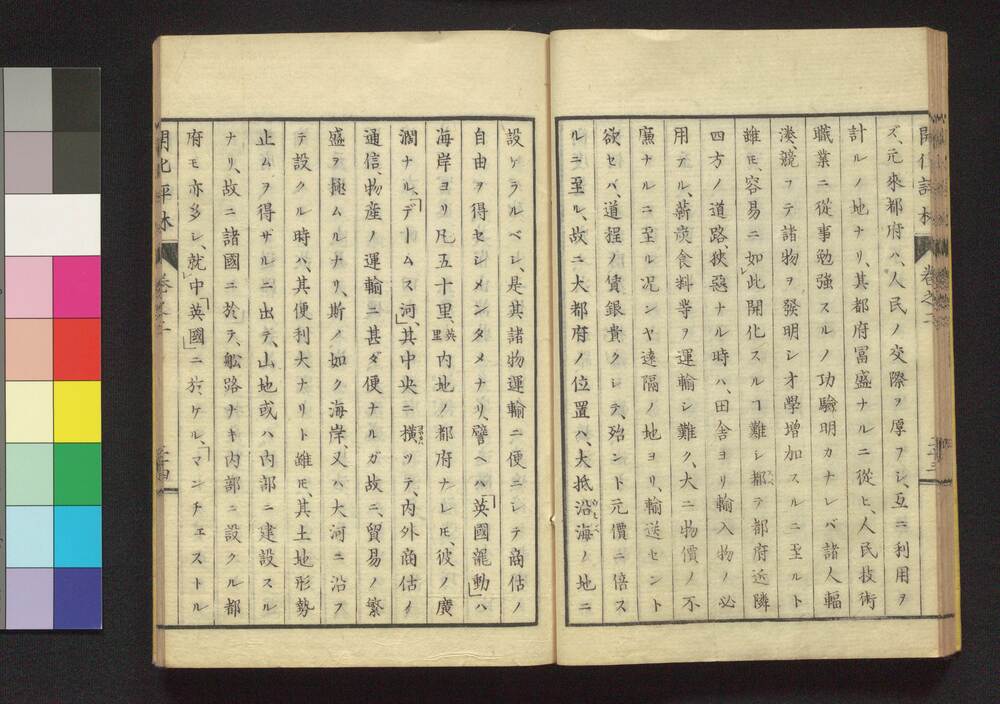 ズ、元來都府ハ、人民ノ交際ヲ厚フシ、互ニ利用ヲ
計ルノ地ナリ、其都府富盛ナルニ從ヒ、人民技術
職業ニ從事勉強スルノ功驗明カナレバ諸人輻
湊、競フテ諸物ヲ發明シ才學増加スルニ至ルト
雖モ、容易ニ如此開化スルヿ難シ都テ都府近隣
四方ノ道路、狹惡ナル時ハ、田舎ヨリ輸入物ノ必
用テル、薪炭食料等ヲ運輸シ難ク、大ニ物價ノ不
廉ナルニ至ル况ンヤ遠隔ノ地ヨリ、輸送セント
欲セバ、道程ノ賃銀貴クシテ、殆ント元價ニ倍ス
ルニ至ル、故ニ大都府ノ位置ハ、大抵沿海ノ地ニ
設ケラルベシ、是其諸物運輸ニ便ニシテ商估ノ
自由ヲ得セシメンタメナリ、譬ヘハ「英國龍動」ハ
海岸ヨリ凡五十里、英里内地ノ都府ナレモ、彼ノ廣
濶ナル、「デームス河」、其中央ニ横ツテ、内外商估ノ
通信、物産ノ運輸ニ甚ダ便ナルガ故ニ、貿易ノ繁
盛ヲ極ムルナリ、斯ノ如ク海岸、又ハ大河ニ沿フ
テ設クル時ハ、其便利大ナリト雖モ、其土地形勢
止ムヲ得サルニ出テ、山地或ハ内部ニ建設スル
ナリ、故ニ諸國ニ於テ、舩路ナキ内部ニ設クル都
府モ亦多シ、就中「英國」ニ於ケル、「マンチェストル
卷之二
二十四